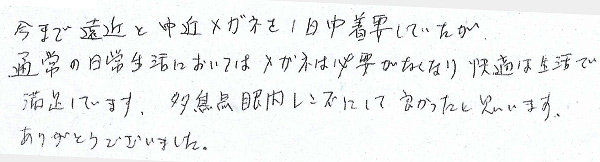 今まで遠近と中近メガネを1日中着要していたが
通常の日常生活においてはメガネは必要がなくなり快適な生活で
満足しています、多焦点眼内レンズにして良かったと思います、
ありがとうございました。